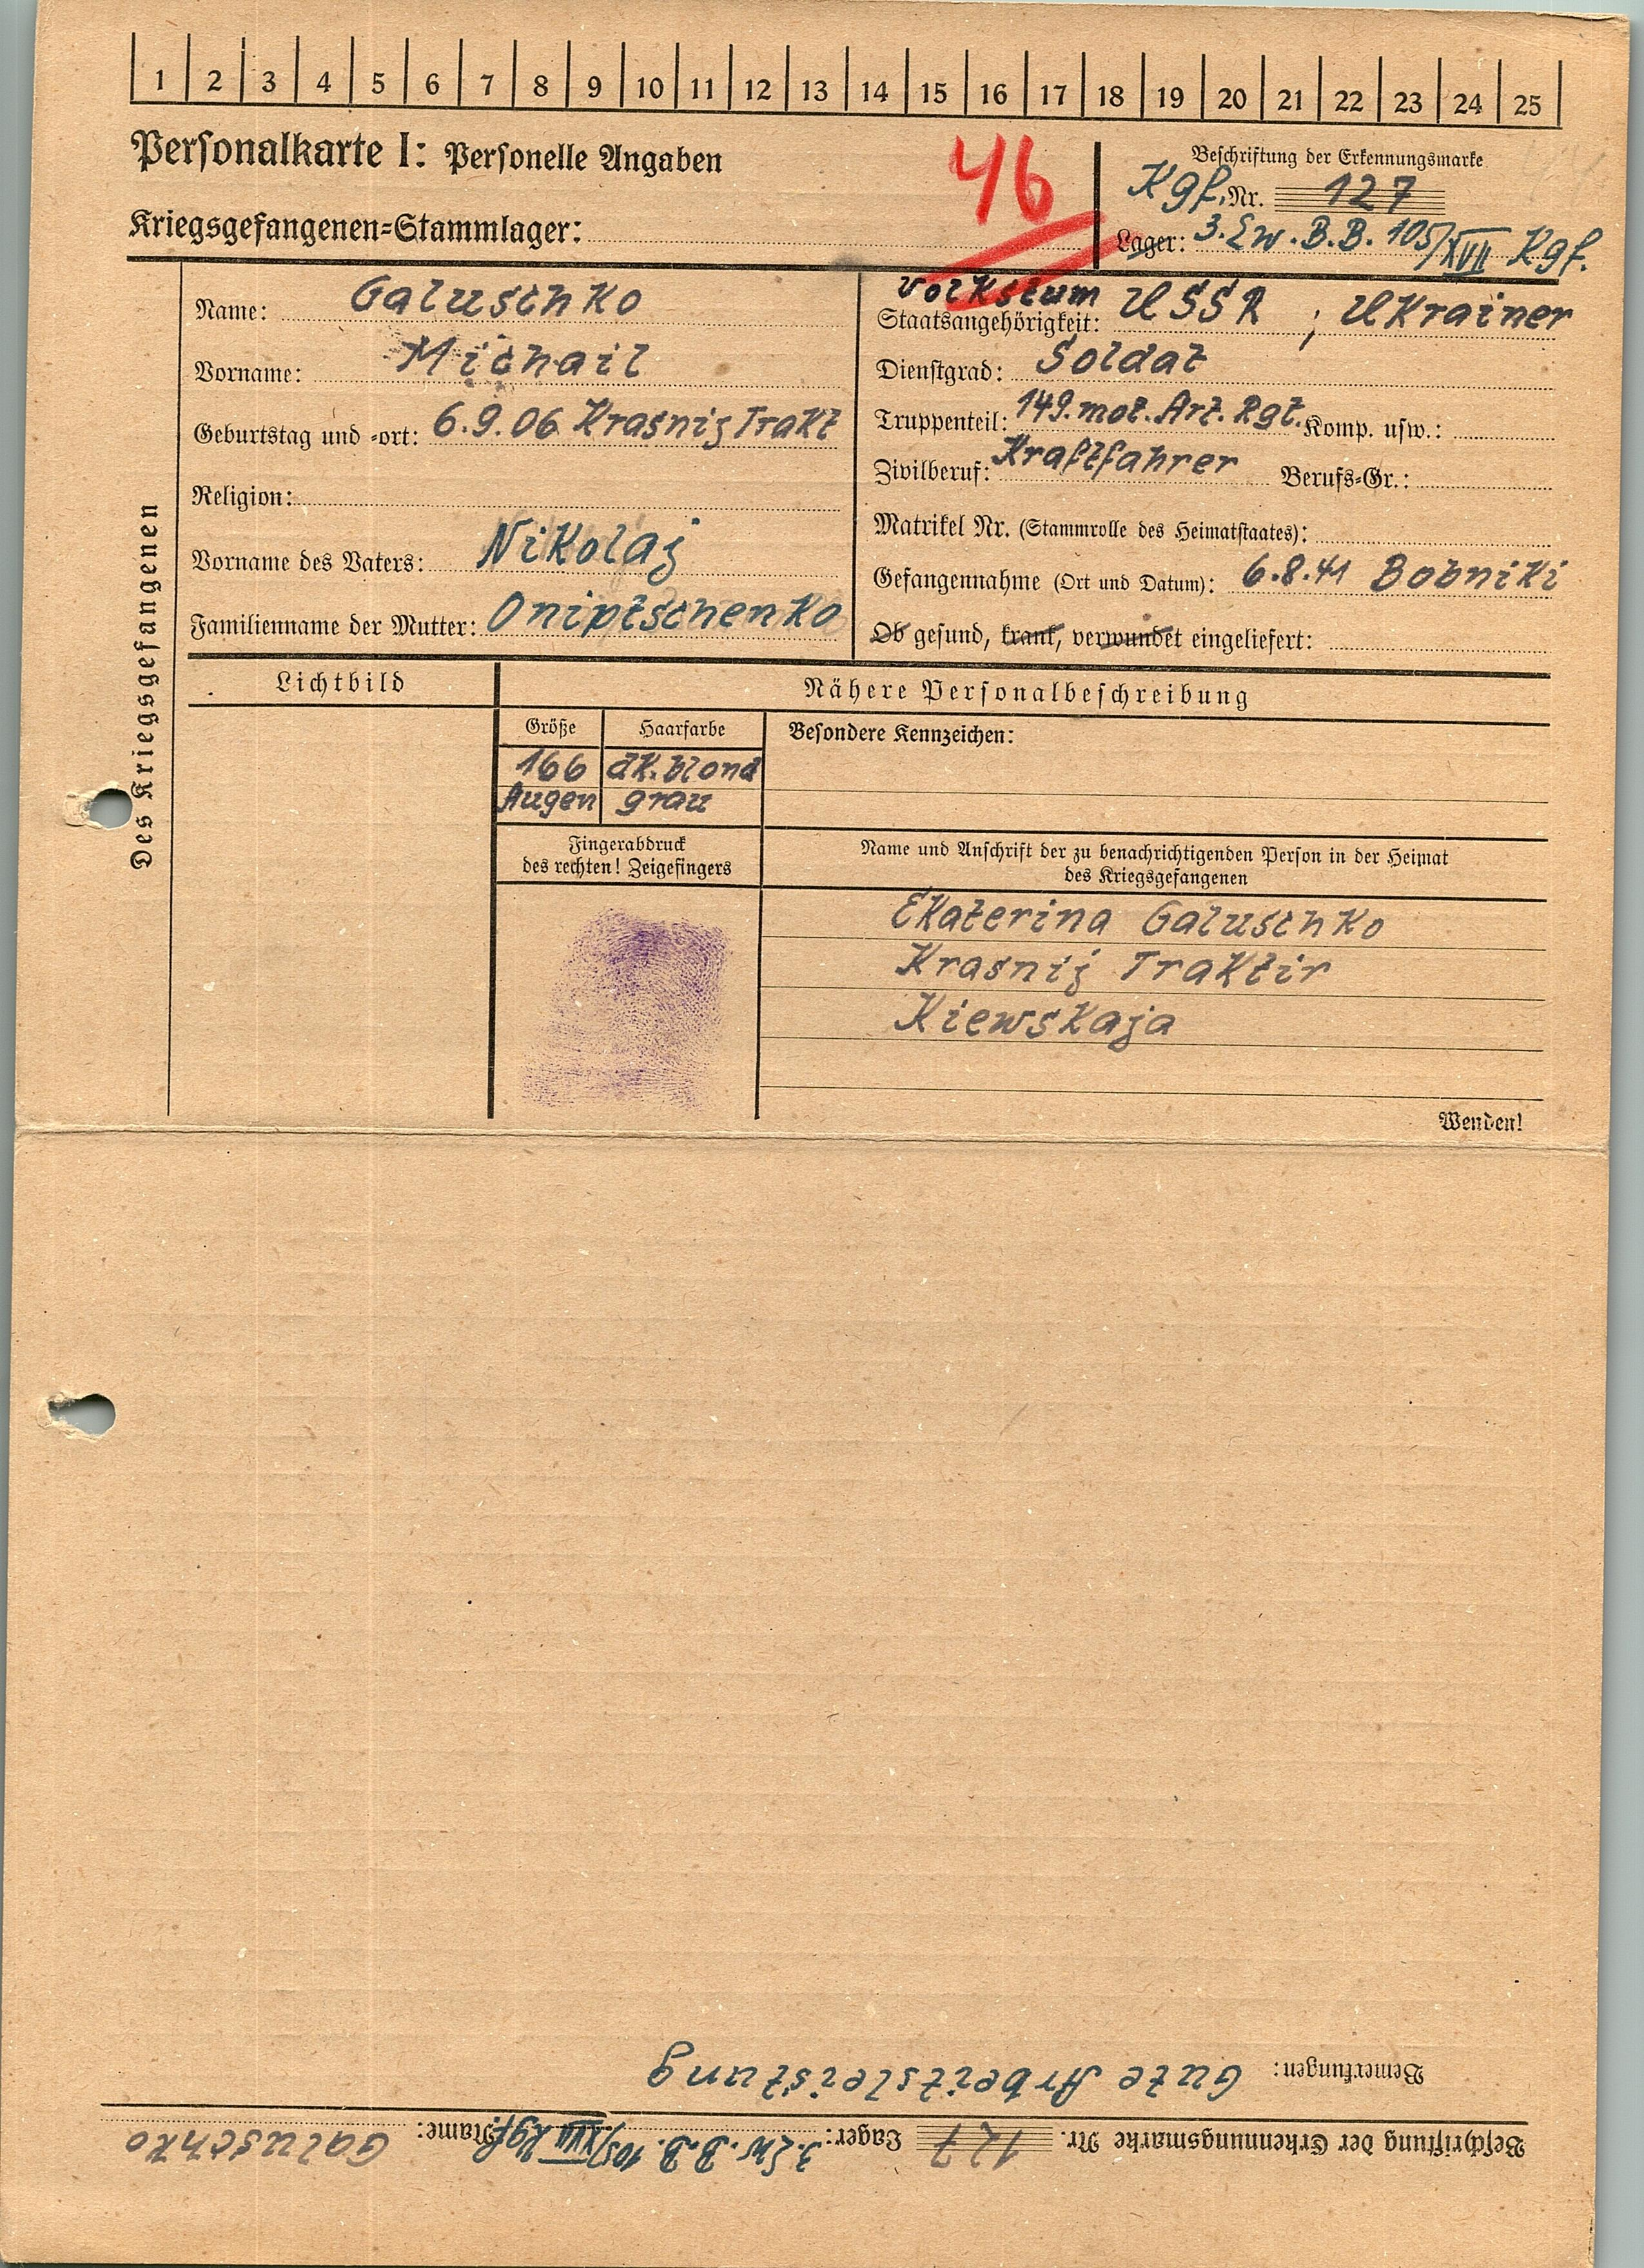 1 2 3 4 5 6 7 8 9 10 11 12 13 14 15 16 17 18 19 20 21 22 23 24 25
Personalkarte I: Personelle Angaben
46
Beschriftung der Erkennungsmarke
Kgf. Nr. 127
Kriegsgefangenen=Stammlager:
Lager: 3. Ew. B.B. 105/XVII Kgf.
Des Kriegsgefangenen
Name: Galuschko
Vorname: Michail
Geburtstag und =ort: 6.9.06 Krasnij Trakt
Religion:
Vorname des Vaters: Nikolaj
Familienname der Mutter: Oniptschenko
Volkstum
Staatsangehörigkeit: USSR ; Ukrainer
Dienstgrad: Soldat
Truppenteil: 149. mot. Art. Rgt. Komp. usw.:
Zivilberuf: Kraftfahrer Berufs=Gr.:
Matrikel Nr. (Stammrolle des Heimatstaates):
Gefangennahme (Ort und Datum): 6.8.41 Bobniki
Ob gesund, krank, verwundet eingeliefert:
Lichtbild
Nähere Personalbeschreibung
Größe Haarfarbe
166 dk. blond
Augen grau
Besondere Kennzeichen:
Fingerabdruck
des rechten! Zeigefingers
Name und Anschrift der zu benachrichtigenden Person in der Heimat
des Kriegsgefangenen
Ekaterina Galuschko
Krasnij Traktir
Kiewskaja
Wenden!
Beschriftung der Erkennungsmarke Nr. 127 Lager: 3. Ew. B.B. 105/XVII Kgf. Name: Galuschko
Bemerkungen: Gute Arbeitsleistung